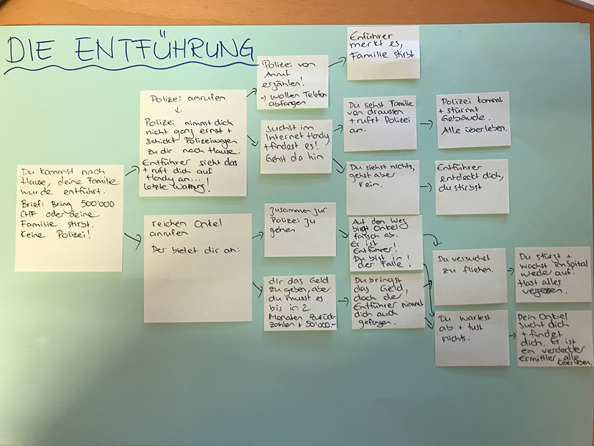 DIE ENTFÜHRUNG
Du kommst nach
Hause, deine Familie
wurde entführt.
Brief: Bring 500'000
CHF oder deine
Familie stirbt.
Keine Polizei!
Polizei anrufen
Polizei nimmt dich
nicht ganz ernst +
schickt Polizeiwagen
zu dir nach Hause.
Entführer sieht das
+ ruft dich auf
Handy an...!
letzte Warnung!
reichen Onkel
anrufen
Der bietet dir an:
Polizei von
Anruf
erzählen!
→ wollen Telefon
abfangen
Entführer
merkt es,
Familie stirbt
suchst im
Internet Handy
+ findest es!
Gehst da hin
Du siehst Familie
von draussen
+ rufst Polizei
an.
Polizei kommt
+ stürmt
Gebäude.
Alle überleben.
Du siehst nichts,
gehst aber
rein.
Entführer
entdeckt dich,
du stirbst
zusammen zur
Polizei zu
gehen
Auf dem Weg
biegt Onkel
falsch ab.
Er ist
Entführer!
Du bist in
der Falle!
dir das Geld
zu geben, aber
du musst es
bis in 2
Monaten zurück-
zahlen + 50'000.-
Du bringst
das Geld,
doch der
Entführer nimmt
dich auch
gefangen.
Du versuchst
zu fliehen.
Du stirbst +
wachst im Spital
wieder auf.
Hast alles
vergessen.
Du wartest
ab + tust
nichts.
Dein Onkel
sucht dich
+ findet
dich. Er ist
ein verdeckter
Ermittler. Alle
überleben.